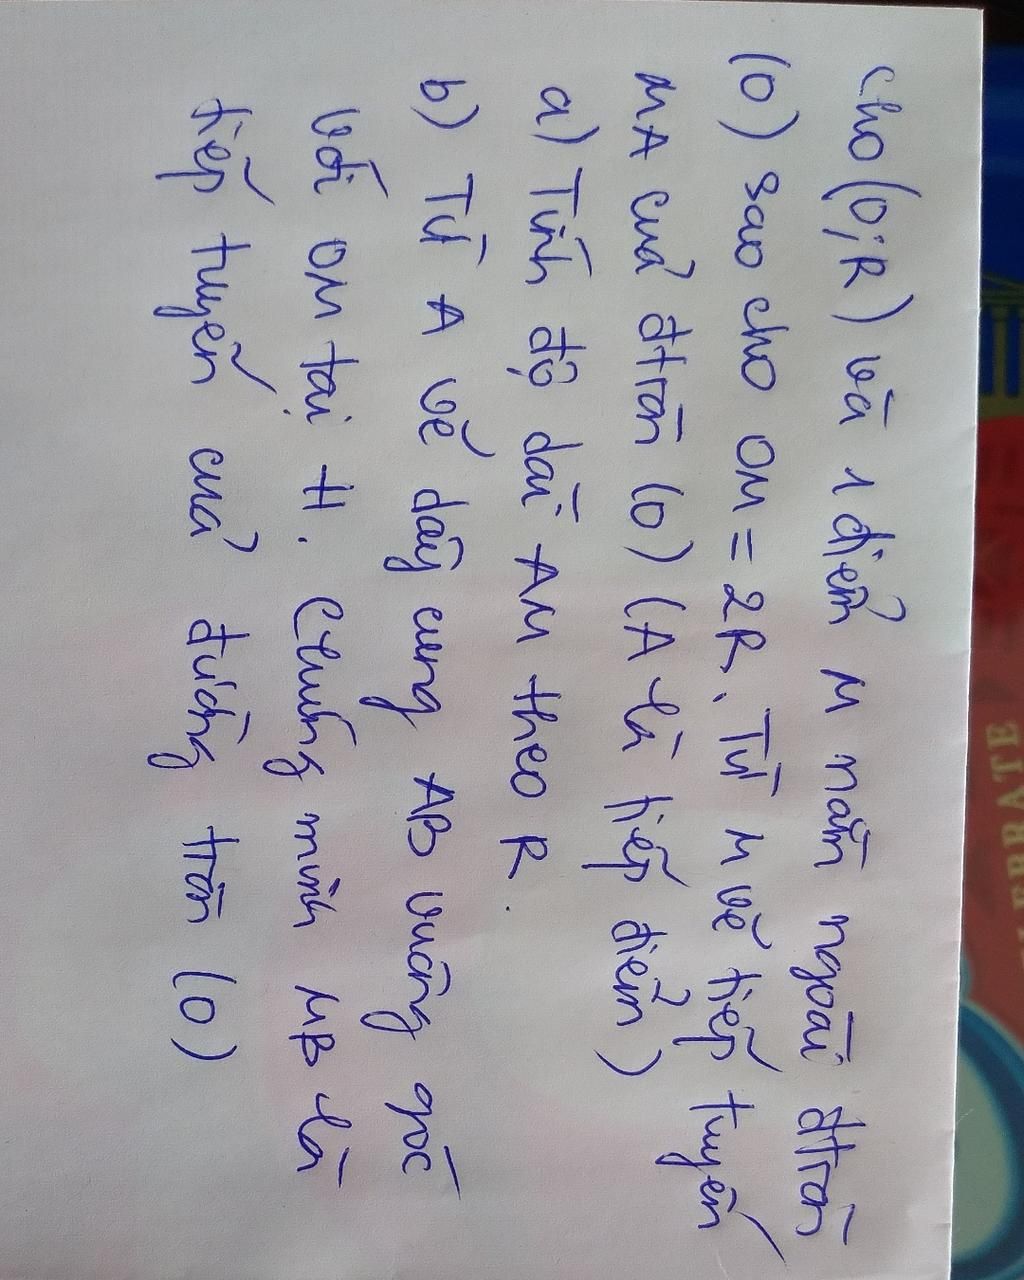 cho (O;R) và 1 điểm M nằm ngoài đtròn
(O) sao cho OM = 2R. Từ M vẽ tiếp tuyến
MA của đtròn (O) (A là tiếp điểm)
a) Tính độ dài AM theo R.
b) Từ A vẽ dây cung AB vuông góc
với OM tại H. Chứng minh MB là
tiếp tuyến của đường tròn (O)